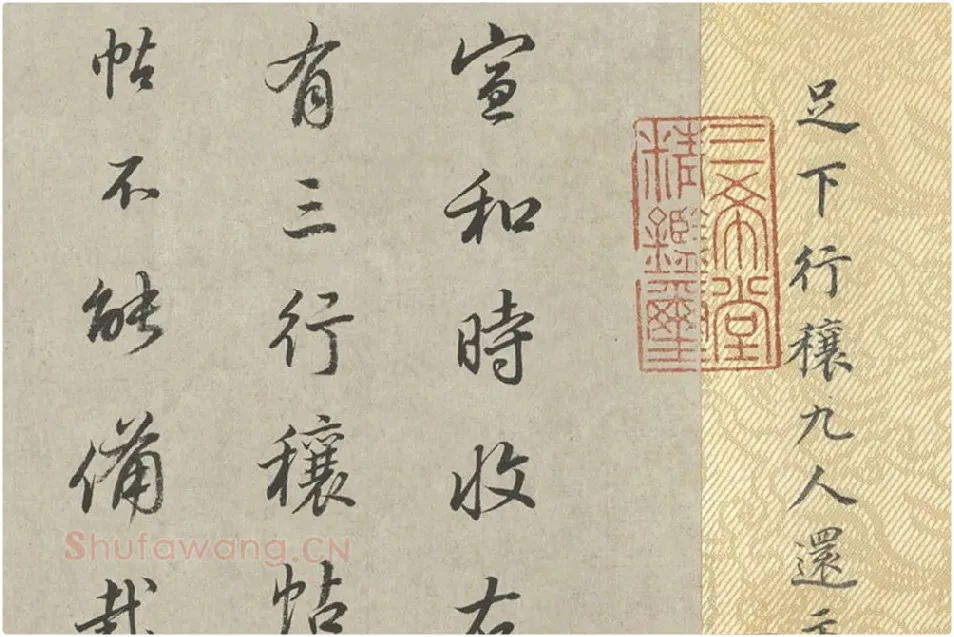 足下行穰九人還
三希堂
精鑑璽
宣和時收右
有三行穰帖
帖不能備載
Shufawang.CN